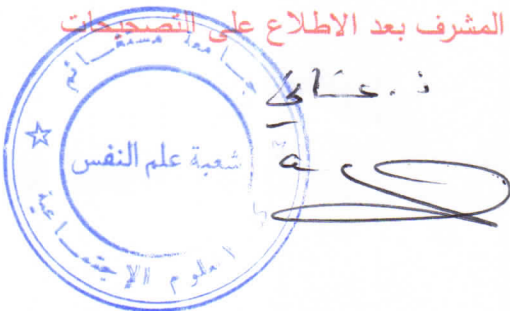 المشرف بعد الاطلاع على التصحيحات
جامعة مستغانم
شعبة علم النفس
العلوم الإجتماعية